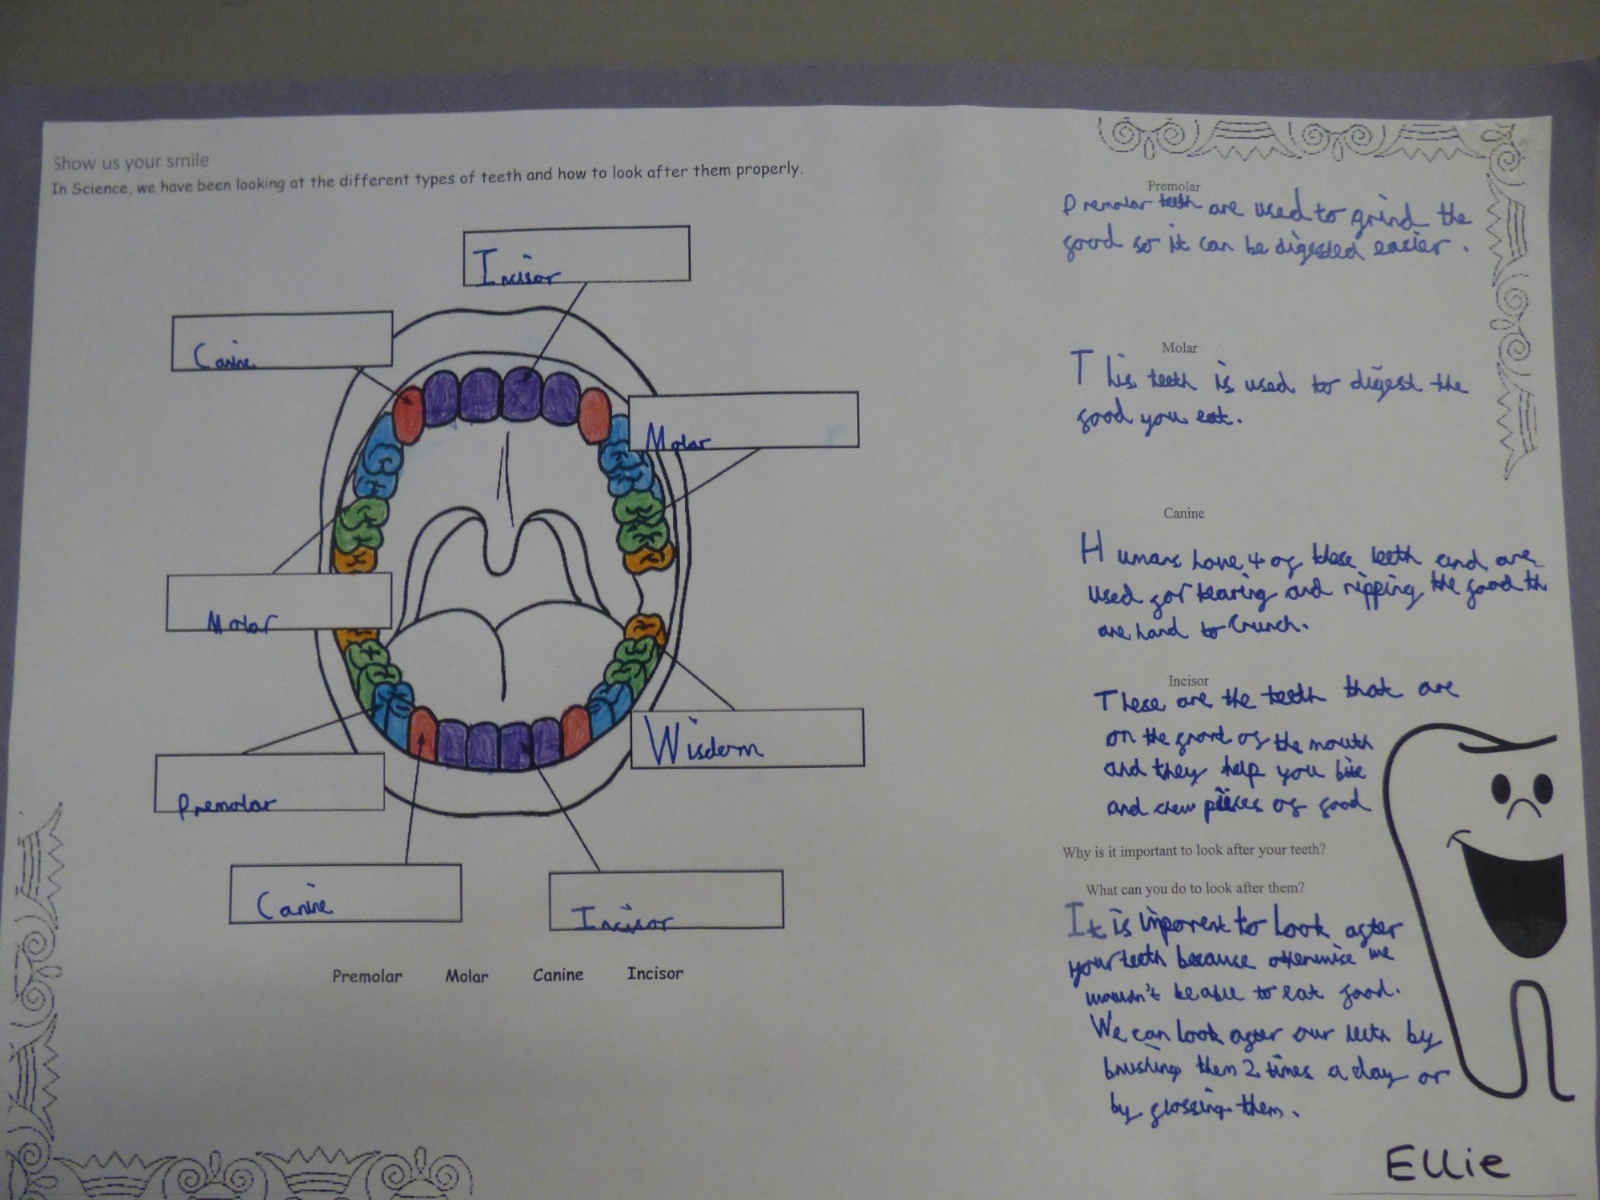 Show us your smile
In Science, we have been looking at the different types of teeth and how to look after them properly.
Incisor
Canine
Molar
Molar
Wisdom
Premolar
Canine
Incisor
Premolar Molar Canine Incisor
Premolar
Premolar teeth are used to grind the
food so it can be digested easier.
Molar
This teeth is used to digest the
food you eat.
Canine
Humans have 4 of these teeth and are
used for tearing and ripping the food th
are hard to Crunch.
Incisor
These are the teeth that are
on the front of the mouth
and they help you bite
and chew pieces of food
Why is it important to look after your teeth?
What can you do to look after them?
It is imporent to look after
your teeth because otherwise we
wouldn't be able to eat food.
We can look after our teeth by
brushing them 2 times a day or
by flossing them.
Ellie